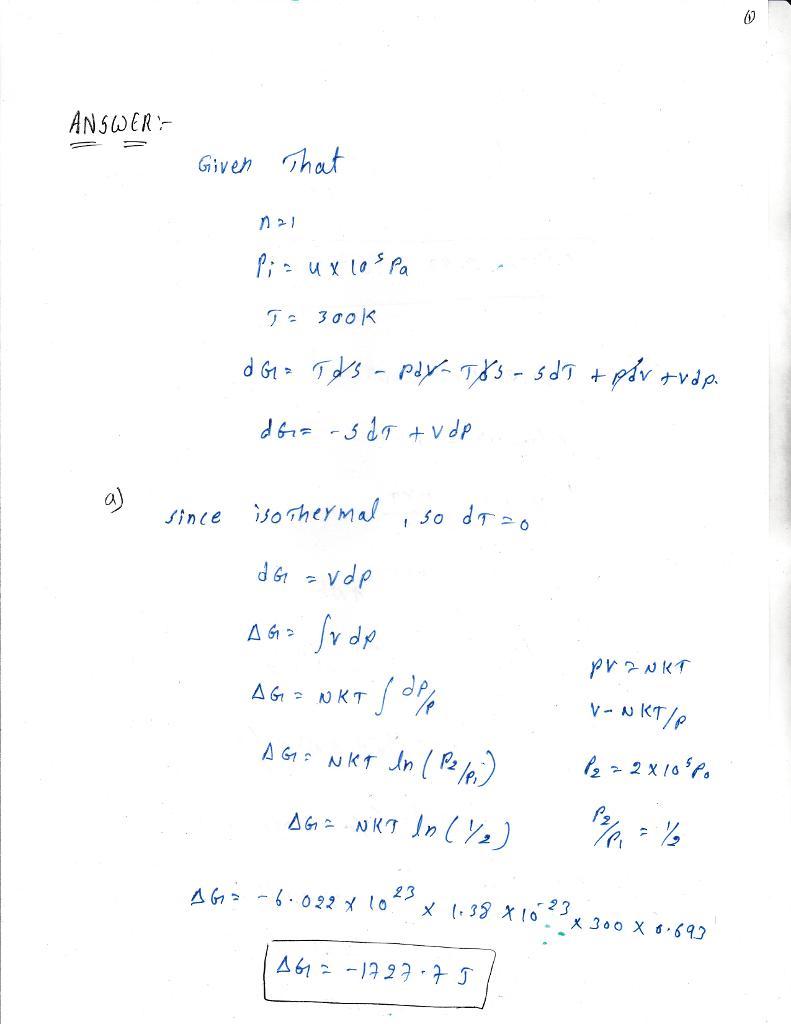 (1)
ANSWER:-
Given That
n=1
Pi = 4 x 10^5 Pa
T = 300K
dG = Tds - pdv - Tds - sdT + pdv + vdp.
dG = -sdT + vdp
a) since isothermal, so dT=0
dG = vdp
ΔG = ∫vdp
ΔG = NKT ∫ dP/P
PV = NKT
V - NKT/P
ΔG = NKT ln (P2/Pi)
P2 = 2 x 10^5 Pa
ΔG = NKT ln (1/2)
P2/P1 = 1/2
ΔG = -6.022 x 10^23 x 1.38 x 10^-23 x 300 x 0.693
ΔG = -1727.7 J